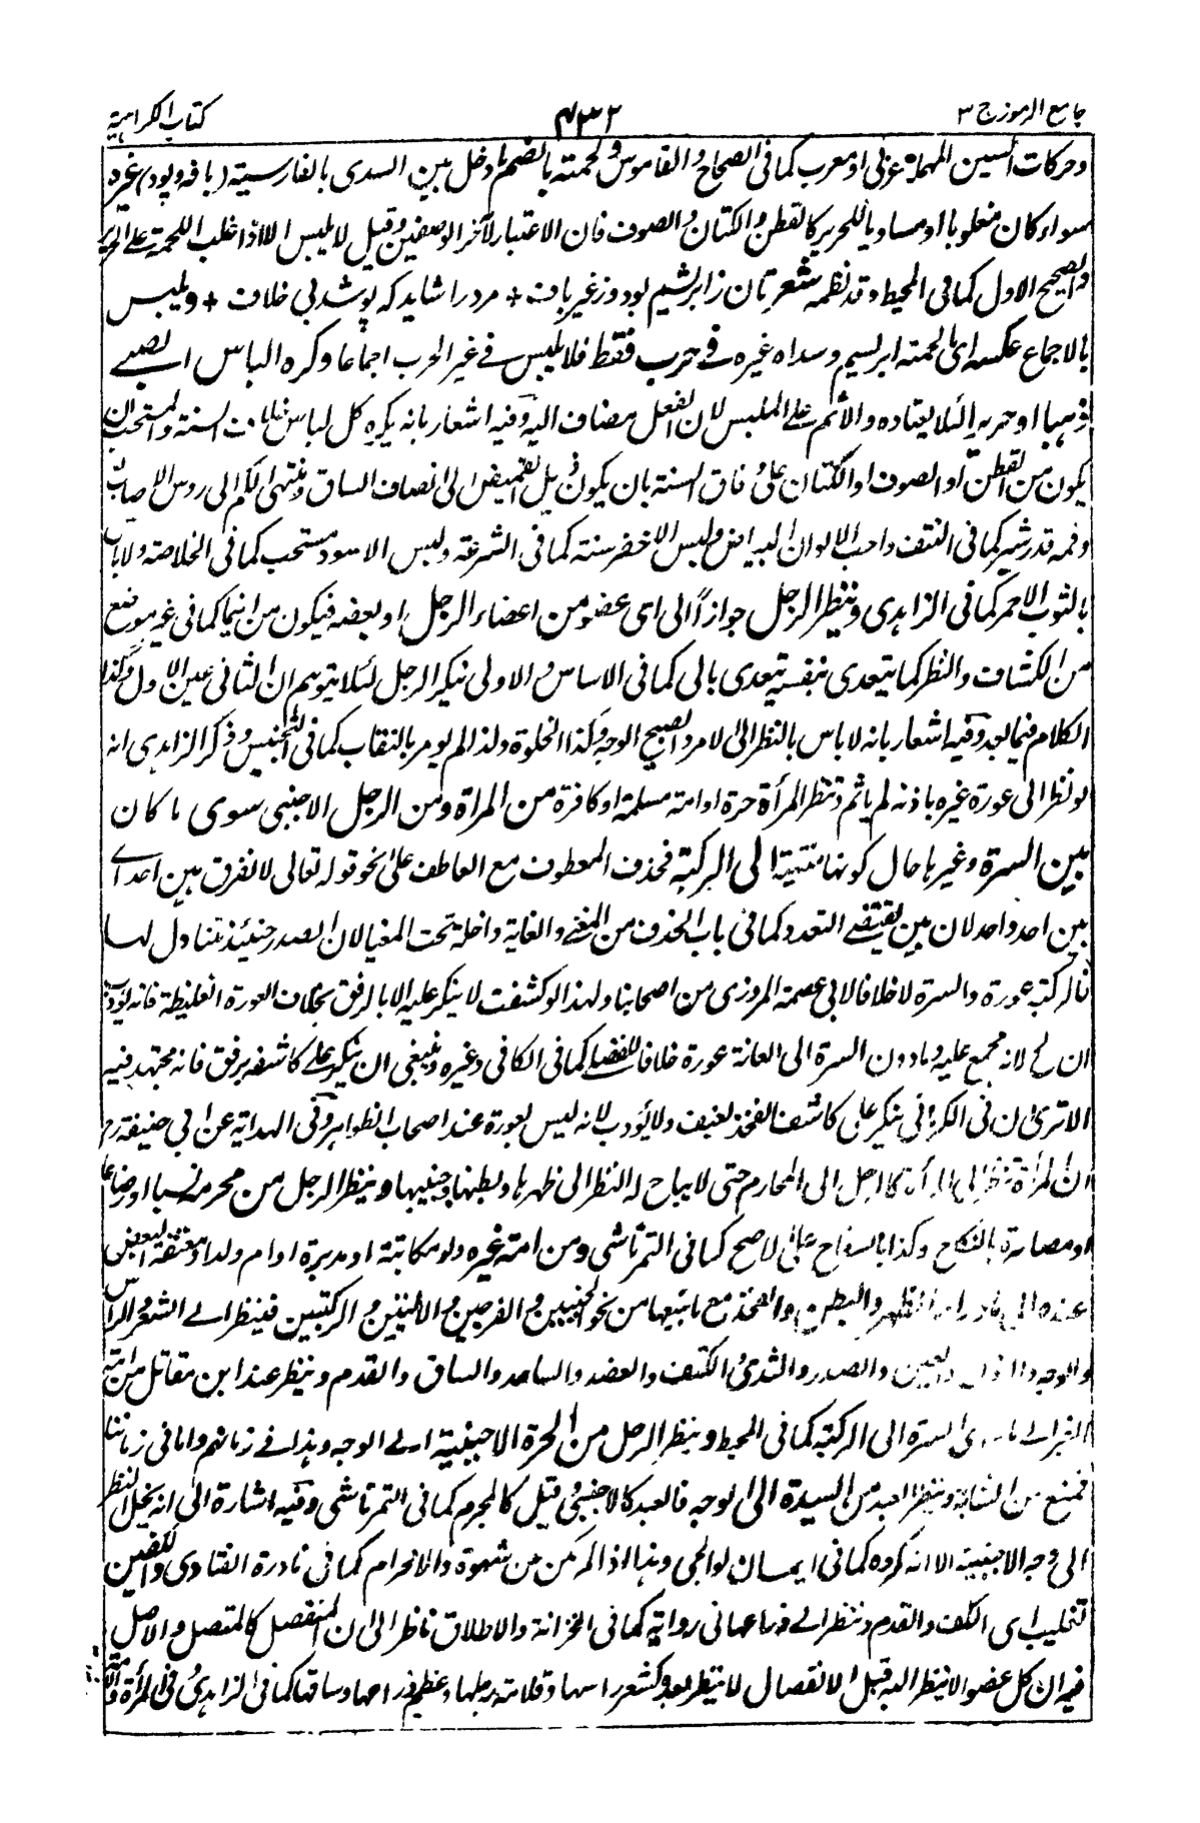 جامع الرموز ج ٣
٤٣٢
كتاب الكراهية
وحركات السين المهملة عربى او معرب كما فى الصحاح والقاموس ولحمته بالضم ما دخل بين السدى بالفارسية (بافه وپود) غيره
سواء كان مغلوبا او مساويا للحرير كالقطن والكتان والصوف فان الاعتبار لآخر الوصفين وقيل لا يلبس الا اذا غلب اللحمة على الحرير
والصحيح الاول كما فى المحيط وقد نظمه شعر تان ز ابريشم بود وز غير باف + مرد را شايد كه پوشد بى خلاف + ويلبس
بالاجماع عكسه اى ما لحمته ابريسم وسداه غيره فى حرب فقط فلا يلبس فى غير الحرب اجماعا وكره الباس الصبى
ذهبا او حريرا لئلا يعتاده والاثم على الملبس لان الفعل مضاف اليه وفيه اشعار بانه يكره كل لباس خلاف السنة والمستحب ان
يكون من القطن او الصوف او الكتان على وفاق السنة بان يكون ذيل القميص الى انصاف الساق ومنتهى الكم الى رؤس الاصابع
وفمه قدر شبر كما فى النتف واحب الالوان البياض ولبس الاخضر سنة كما فى الشرعة ولبس الاسود مستحب كما فى الخلاصة ولا باس
بالثوب الاحمر كما فى الزاهدى وينظر الرجل جوازا الى اى عضو من اعضاء الرجل او بعضه فيكون من انما كما فى غير موضع
من الكشاف والنظر كما يتعدى بنفسه يتعدى بالى كما فى الاساس والاولى تنكير الرجل لئلا يتوهم ان الثانى عين الاول وكذا
الكلام فيما بعد وفيه اشعار بانه لا باس بالنظر الى الامرد الصبيح الوجه وكذا الخلوة ولذا لم يؤمر بالنقاب كما فى التجنيس وذكر الزاهدى انه
لو نظر الى عورة غيره باذنه لم ياثم وتنظر المرأة حرة او امة مسلمة او كافرة من المراة ومن الرجل الاجنبى سوى ما كان
بين السرة وغيرها حال كونها منتهية الى الركبة فحذف المعطوف مع العاطف على نحو قوله تعالى لا نفرق بين احد اى
بين احد واحد لان بين يقتضى التعدد كما فى باب الحذف من المغنى والغاية داخلة تحت المغيا لان الصدر حينئذ يتناول لها
فالركبة عورة والسرة لا خلافا لابى عصمة المروزى من اصحابنا ولهذا لو كشفت لا ينكر عليه الا بالرفق بخلاف العورة الغليظة فانه يؤدب
ان لج لانه مجمع عليه وما دون السرة الى العانة عورة خلافا للفضلى كما فى الكافى وغيره وينبغى ان ينكر على كاشفه برفق فانه مجتهد فيه
الا ترى ان فى الكرمانى ينكر على كاشف الفخذ بعنف ولا يؤدب لانه ليس بعورة عند اصحاب الظواهر وفى الهداية عن ابى حنيفة رح
ان المرأة تنظر الى المرأة كالرجل الى المحارم حتى لا يباح له النظر الى ظهرها وبطنها وجنبيها وينظر الرجل من محرمه نسبا او رضاعا
او مصاهرة بالنكاح وكذا بالسفاح على الاصح كما فى التمرتاشى ومن امة غيره ولو مكاتبة او مدبرة او ام ولد او معتقة البعض
عنده الى ما وراء الظهر والبطن والفخذ مع ما يتبعها من نحو الجنبين والفرجين والاليتين والركبتين فينظر الى الشعر والراس
والوجه والاذن والعين والصدر والثدى والكتف والعضد والساعد والساق والقدم وينظر عند ابن مقاتل من امة
الغير الى ما سوى السرة الى الركبة كما فى المحيط وينظر الرجل من الحرة الاجنبية الى الوجه وهذا فى زمانهم واما فى زماننا
فمنع من الشابة وينظر العبد من السيدة الى الوجه فالعبد كالاجنبى وقيل كالمحرم كما فى التمرتاشى وفيه اشارة الى انه يحل النظر
الى وجه الاجنبية الا انه مكروه كما فى ايمان لوالجى وهذا اذا لم يكن من شهوة والا فحرام كما فى نادرة الفتاوى والكفين
تغليب اى الكف والقدم وتنظر الى ذراعها فى رواية كما فى الخزانة والاطلاق ناظر الى ان المنفصل كالمتصل والاصل
فيه ان كل عضو لا ينظر اليه قبل الانفصال لا ينظر بعده كشعر راسها وقلامة رجلها وعظم ذراعها وساقها كما فى الزاهدى وفى المرأة